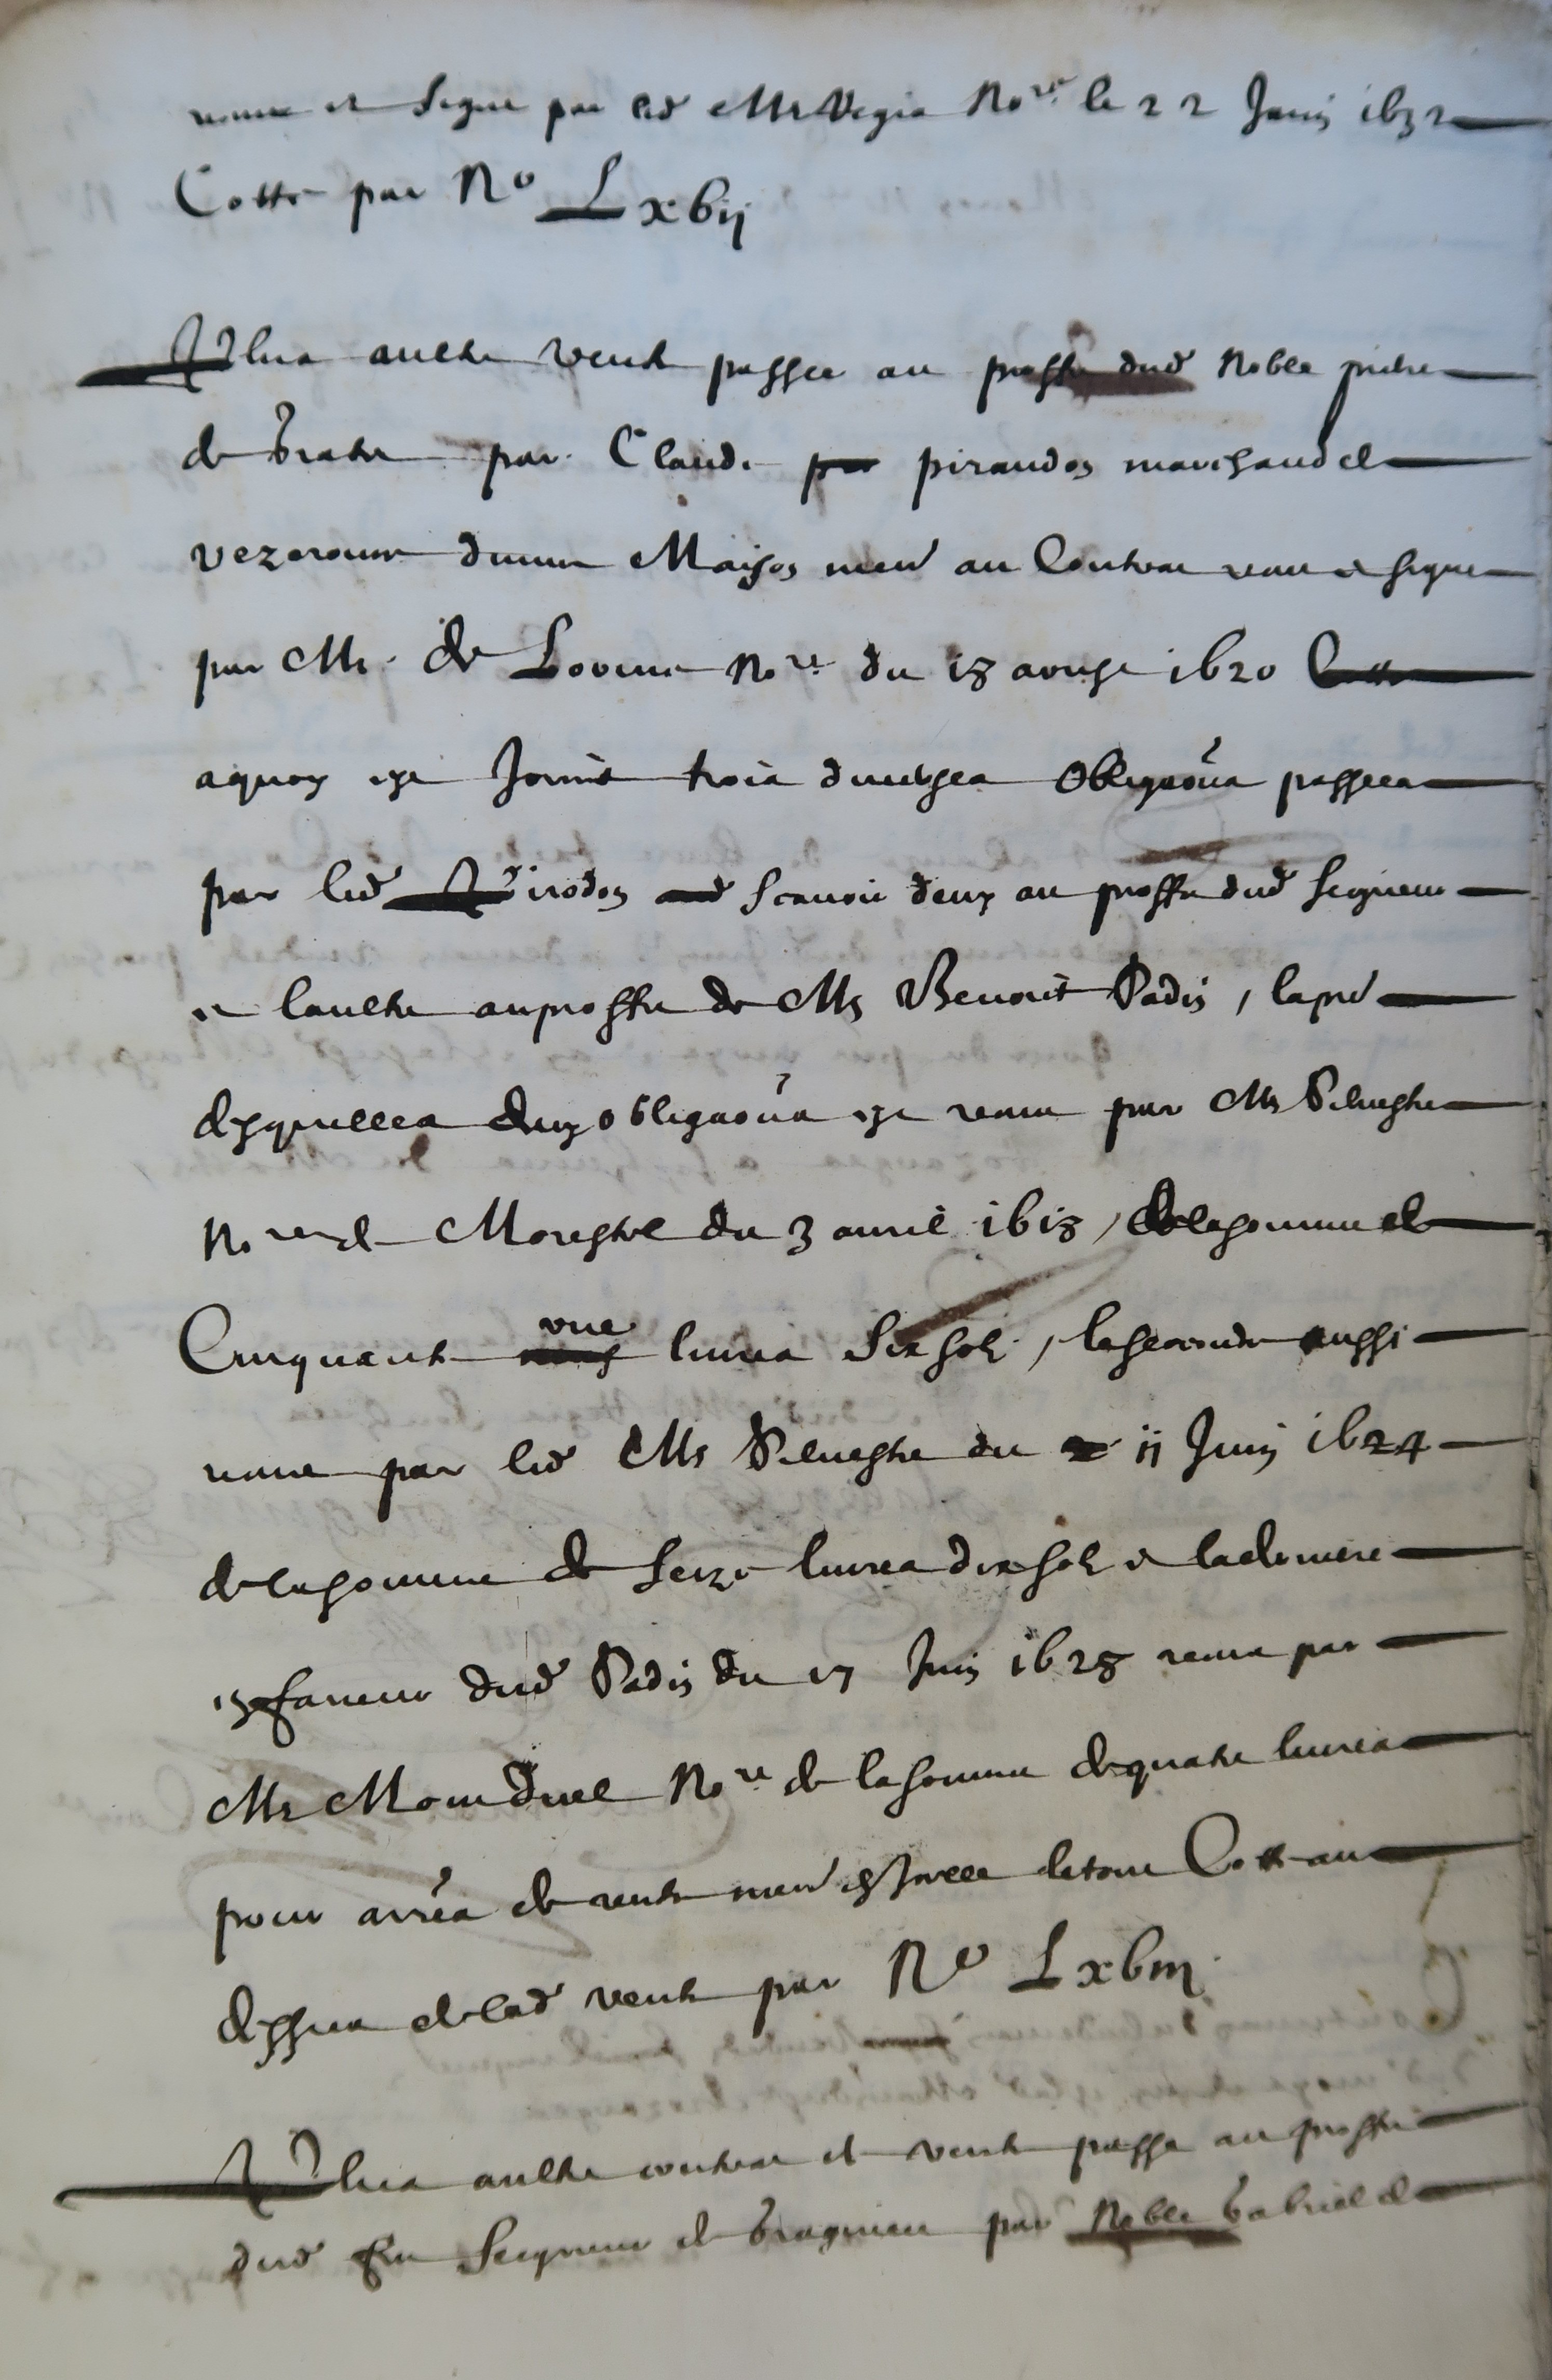 receu et signe par led Mr Vegia No.re le 22 Juin 1632
Cotté par No Lxvij
Plus aultre vente passee au proffit dud Noble pierre
de Grater par Claude par piraudon marchand de
vezeronce dunne Maison men au Contrat receu et signe
par Mr de No.re du 18 1620 Cotte
aquoy est Joinct trois diverses obligaons passees
par led Pirodon aud scavoir deux au proffit dud seigneur
et laultre au proffit de Mr Benoict Padin, la pre
desquelles deux obligaons est receue par Mr Silvestre
No.re de Morestel du 3 auril 1618, de la somme de
Cinquante neuf vne liures six solz, la seconde aussi
receue par led Mr Silvestre du 11 Juin 1624
de la somme de seize liures dix solz et la derniere
en faueur dud Padin du 17 Juin 1628 receue par
Mr No.re de la somme de quatre liures
pour arres de rente men en Icelle le tout Cotté au
dessus de lad vente par No Lxviij
Plus aultre contrat de vente passé au proffit
dud feu Seigneur de Bragnieu par Noble Gabriel de